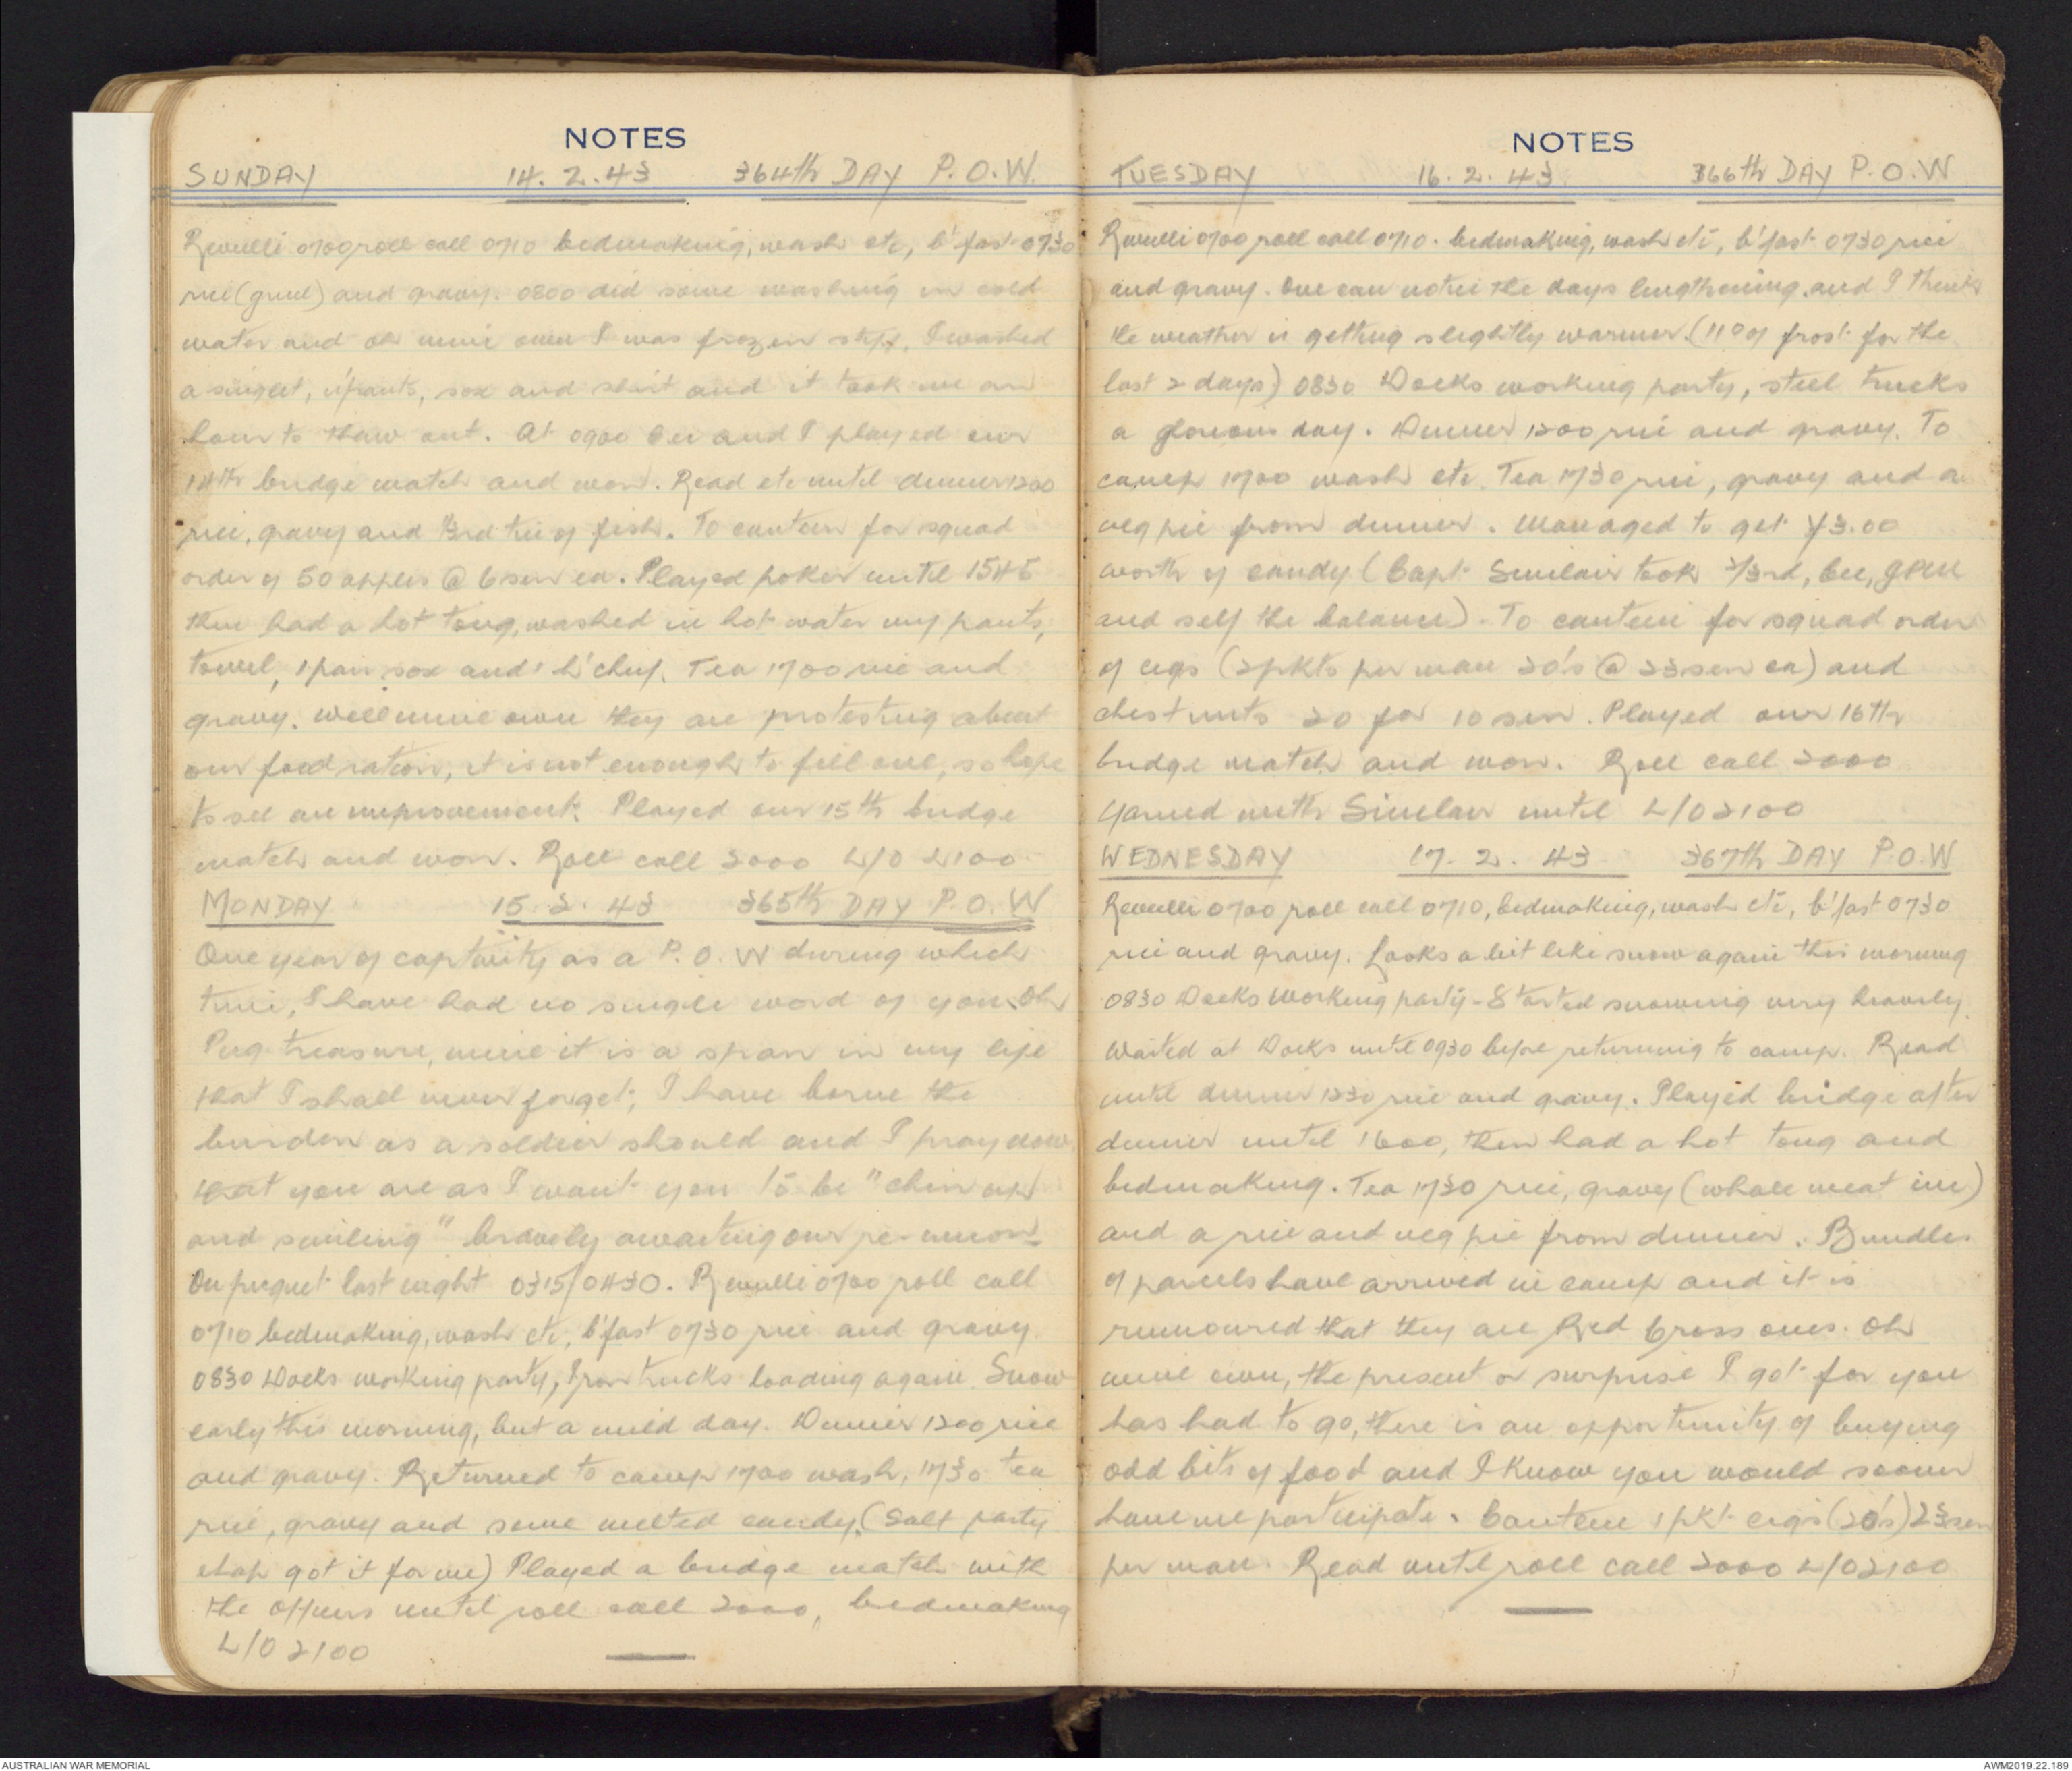 NOTES
SUNDAY 14.2.43 364th DAY P.O.W.
Reveille 0700 roll call 0710 bedmaking, wash etc, b'fast 0730
rice (gruel) and gravy. 0800 did some washing in cold
water and oh mine own I was frozen stiff, I washed
a singlet, u'pants, sox and shirt and it took me an
hour to thaw out. At 0900 Cec and I played our
14th bridge match and won. Read etc until dinner 1200
rice, gravy and 1/3rd tin of fish. To canteen for squad
order of 50 apples @ 6 sen ea. Played poker until 1545
then had a hot tong, washed in hot water my pants,
towel, 1 pair sox and 1 h'chief. Tea 1700 rice and
gravy. Well mine own they are protesting about
our food ration, it is not enough to fill one, so hope
to see an improvement. Played our 15th bridge
match and won. Roll call 2000 L/O 2100
MONDAY 15.2.43 365th DAY P.O.W
One year of captivity as a P.O.W during which
time, I have had no single word of you. Oh
Peg treasure, mine it is a span in my life
that I shall never forget, I have borne the
burden as a soldier should and I pray now
that you are as I want you to be "chin up
and smiling" bravely awaiting our re-union
On picquet last night 0315/0430. Reveille 0700 roll call
0710 bedmaking, wash etc, b'fast 0730 rice and gravy
0830 Docks working party, Iron trucks loading again. Snow
early this morning, but a mild day. Dinner 1200 rice
and gravy. Returned to camp 1700 wash, 1730 tea
rice, gravy and some melted candy. (Salt party
chap got it for me) Played a bridge match with
the officers until roll call 2000, bedmaking
L/O 2100
NOTES
TUESDAY 16.2.43 366th DAY P.O.W
Reveille 0700 roll call 0710. bedmaking, wash etc, b'fast 0730 rice
and gravy. One can notice the days lengthening and I think
the weather is getting slightly warmer. (11° of frost for the
last 2 days) 0830 Docks working party, steel trucks
a glorious day. Dinner 1200 rice and gravy. To
camp 1700 wash etc. Tea 1730 rice, gravy and a
veg pie from dinner. Managed to get ¥3.00
worth of candy (Capt Sinclair took 2/3rd, Cec,
and self the balance). To canteen for squad order
of cigs (2 pkts per man 20's @ 23 sen ea) and
chestnuts 20 for 10 sen. Played our 16th
bridge match and won. Roll call 2000
Yarned with Sinclair until L/O 2100
WEDNESDAY 17.2.43 367th DAY P.O.W
Reveille 0700 roll call 0710, bedmaking, wash etc, b'fast 0730
rice and gravy. Looks a bit like snow again this morning
0830 Docks Working party - Started snowing very heavily.
Waited at Docks until 0930 before returning to camp. Read
until dinner 1230 rice and gravy. Played bridge after
dinner until 1600, then had a hot tong and
bedmaking. Tea 1730 rice, gravy (whale meat in)
and a rice and veg pie from dinner. Bundles
of parcels have arrived in camp and it is
rumoured that they are Red Cross ones. Oh
mine own, the present or surprise I got for you
has had to go, there is an opportunity of buying
odd bits of food and I know you would sooner
have me participate. Canteen 1 pkt cigs (20's) 23 sen
per man. Read until roll call 2000 L/O 2100
AUSTRALIAN WAR MEMORIAL
AWM2019.22.189